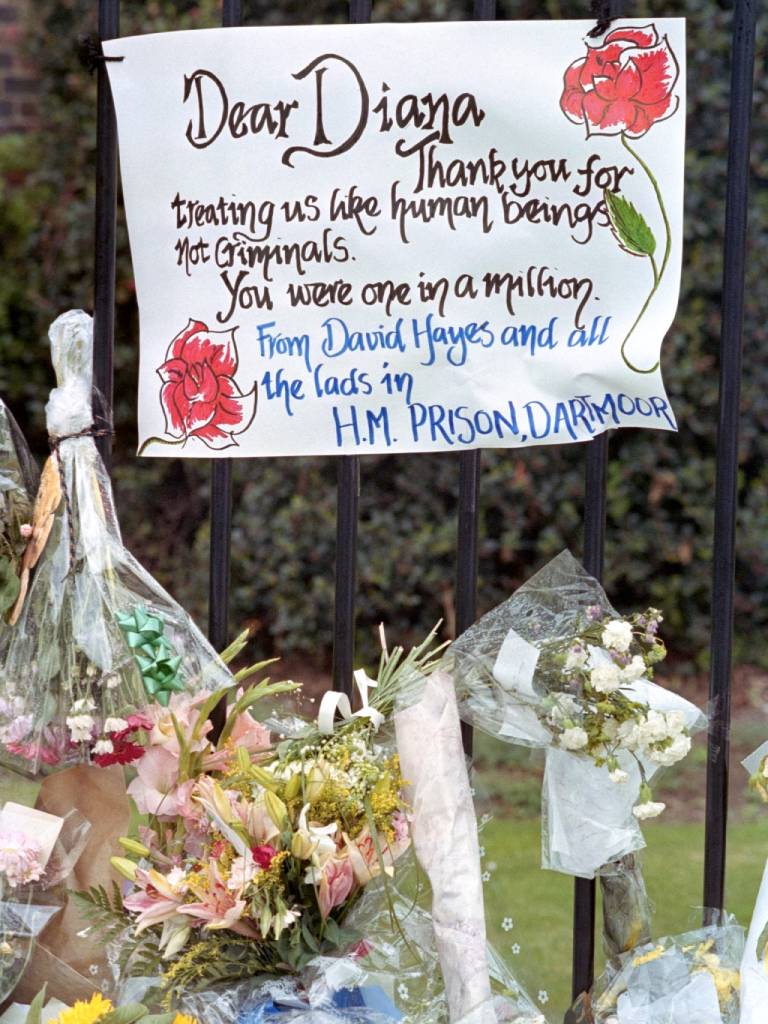 Dear Diana
Thank you for
treating us like human beings
not Criminals.
You were one in a million.
From David Hayes and all
the lads in
H.M. PRISON, DARTMOOR